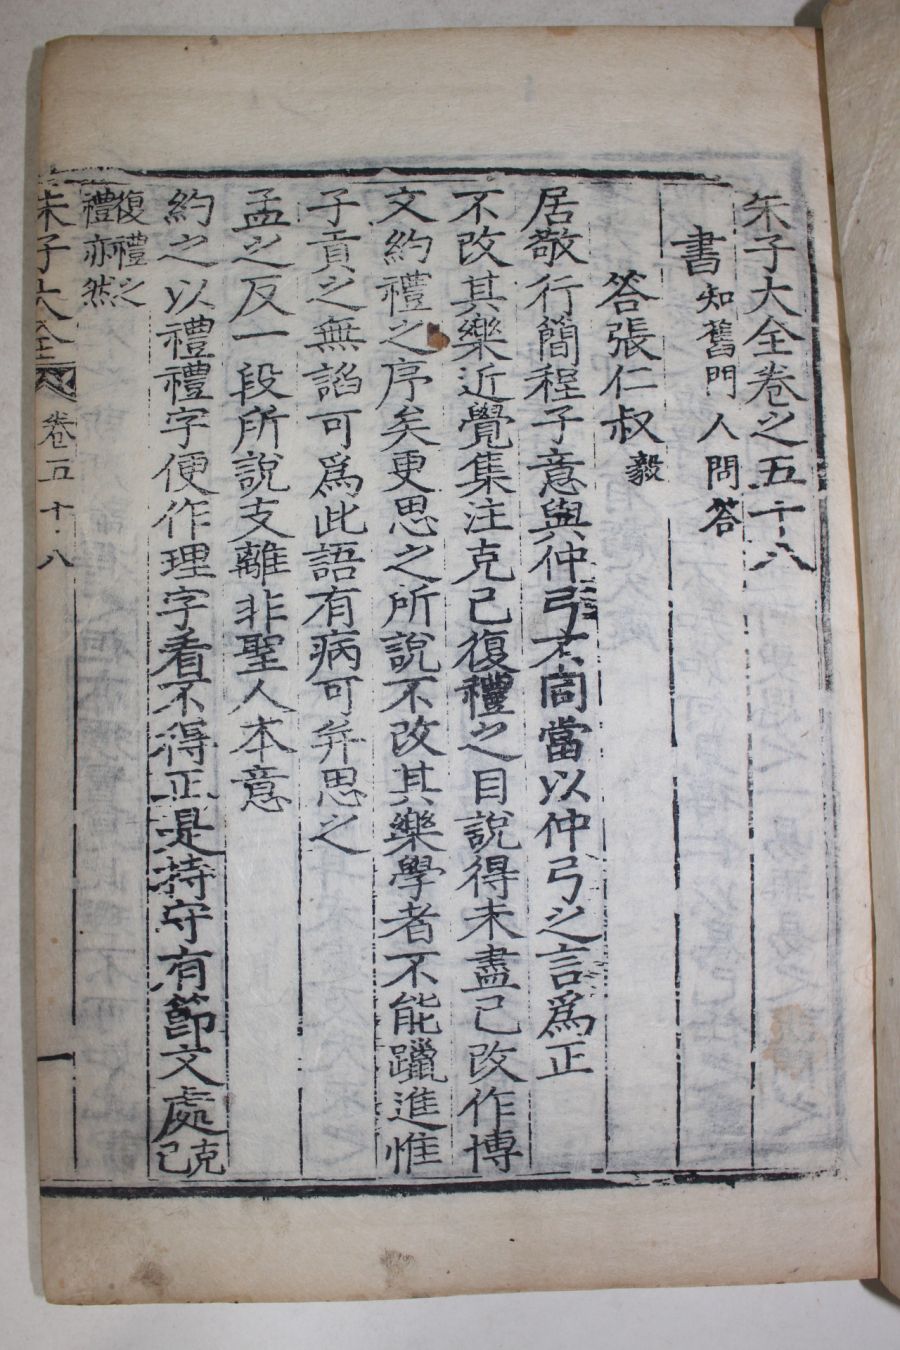 朱子大全卷之五十八
書 知舊門人問答
答張仁叔 毅
居敬行簡程子意與仲弓不同當以仲弓之言爲正
不改其樂近覺集注克己復禮之目說得未盡已改作博
文約禮之序矣更思之所說不改其樂學者不能躐進惟
子貢之無諂可爲此語有病可并思之
孟之反一段所說支離非聖人本意
約之以禮禮字便作理字看不得正是持守有節文處克己
復禮之禮亦然
朱子大全 卷五十八 一